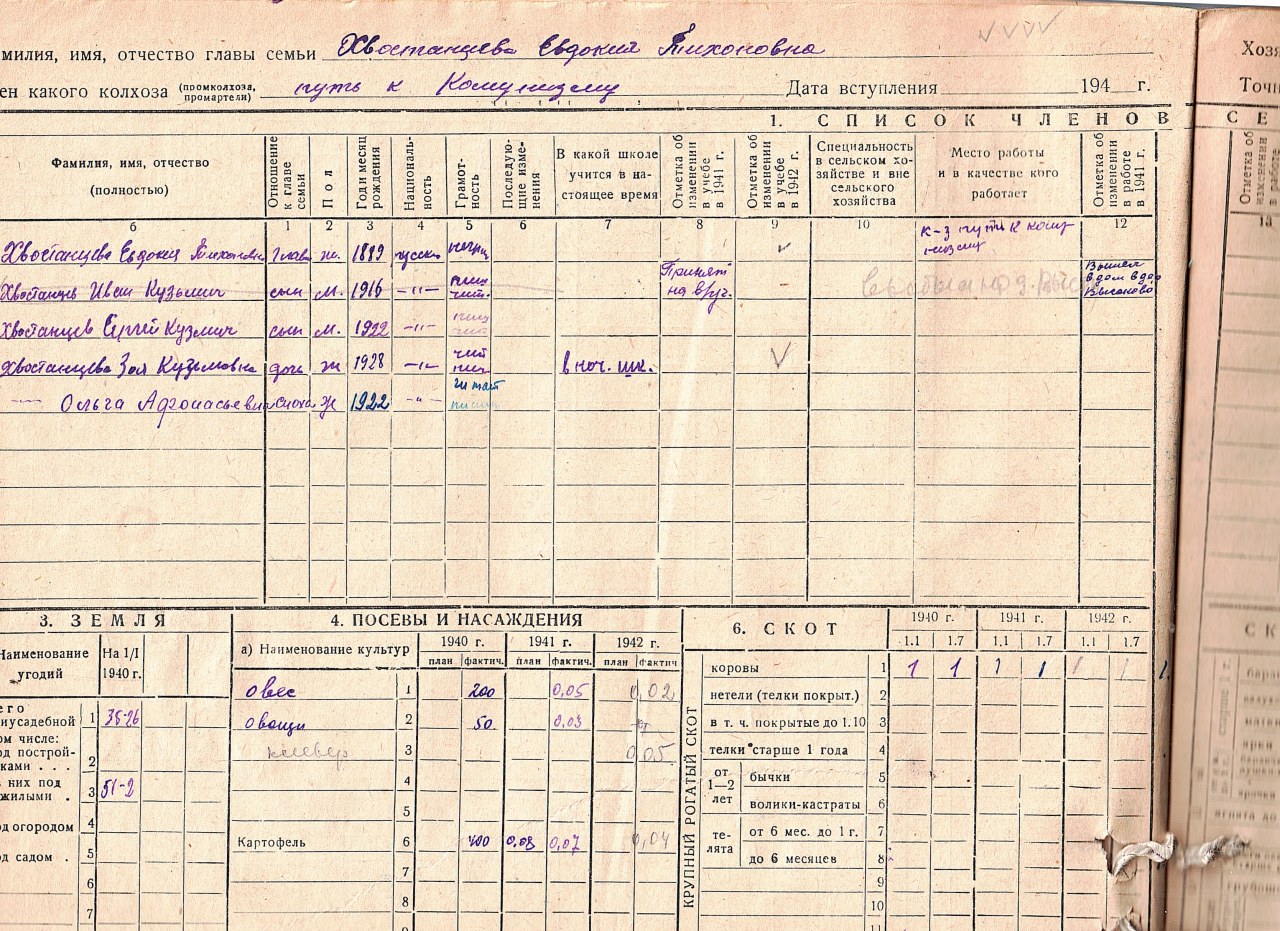 милия, имя, отчество главы семьи Хвостанцева Евдокия Тихоновна
ен какого колхоза (промколхоза, промартели) путь к Комунизму Дата вступления 194 г.
1. СПИСОК ЧЛЕНОВ
Фамилия, имя, отчество (полностью) Отношение к главе семьи Пол Год и месяц рождения Националь-ность Грамот-ность Последую-щие изме-нения В какой школе учится в на-стоящее время Отметка об изменении в учебе в 1941 г. Отметка об изменении в учебе в 1942 г. Специальность в сельском хо-зяйстве и вне сельского хозяйства Место работы и в качестве кого работает Отметка об изменении в работе в 1941 г.
б 1 2 3 4 5 6 7 8 9 10 11 12
Хвостанцева Евдокия Тихоновна глава ж. русск. негр. к-з путь к кому
низму
Хвостанцев Иван Кузьмич сын м. 1916 -"- Принят
на вруч.
Хвостанцев Сергий Кузмич сын м. 1922 -"-
Хвостанцева Зоя Кузьмовна дочь ж 1928 -"- чит в нач. шк.
Ольга Афонасьевна сноха ж 1922 -"- читает
3. ЗЕМЛЯ
Наименование угодий На 1/I 1940 г.
его
иусадебной 1 35-26
ом числе:
од построй-
ками . . . 2
них под
жилыми . 3 51-2
од огородом 4
од садом . 5
6
7
4. ПОСЕВЫ И НАСАЖДЕНИЯ
а) Наименование культур 1940 г. 1941 г. 1942 г.
план фактич. план фактич. план фактич
Овес 1 200 0,05 0,02
Овощи 2 50 0,03
клевер 3 0,05
4
5
Картофель 6 400 0,08 0,07 0,04
7
8
9
6. СКОТ
1940 г. 1941 г. 1942 г.
1.1 1.7 1.1 1.7 1.1 1.7
КРУПНЫЙ РОГАТЫЙ СКОТ
коровы 1 1 1 1 1 1 1 1
нетели (телки покрыт.) 2
в т. ч. покрытые до 1.10 3
телки старше 1 года 4
от 1—2 лет бычки 5
волики-кастраты 6
те-лята от 6 мес. до 1 г. 7
до 6 месяцев 8
9
10
11
Хозя
Точн
СЕ
Отметка об
13
СК